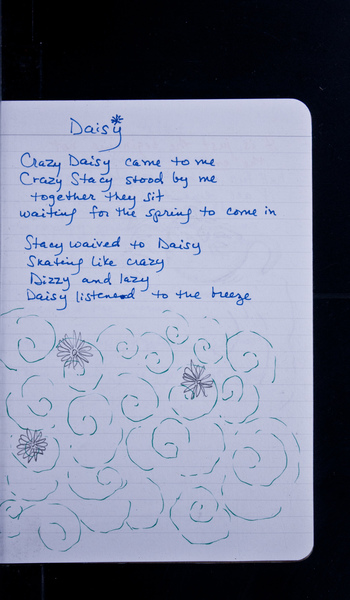 Daisy
Crazy Daisy came to me
Crazy Stacy stood by me
together they sit
waiting for the spring to come in
Stacy waived to Daisy
Skating like crazy
Dizzy and lazy
Daisy listened to the breeze